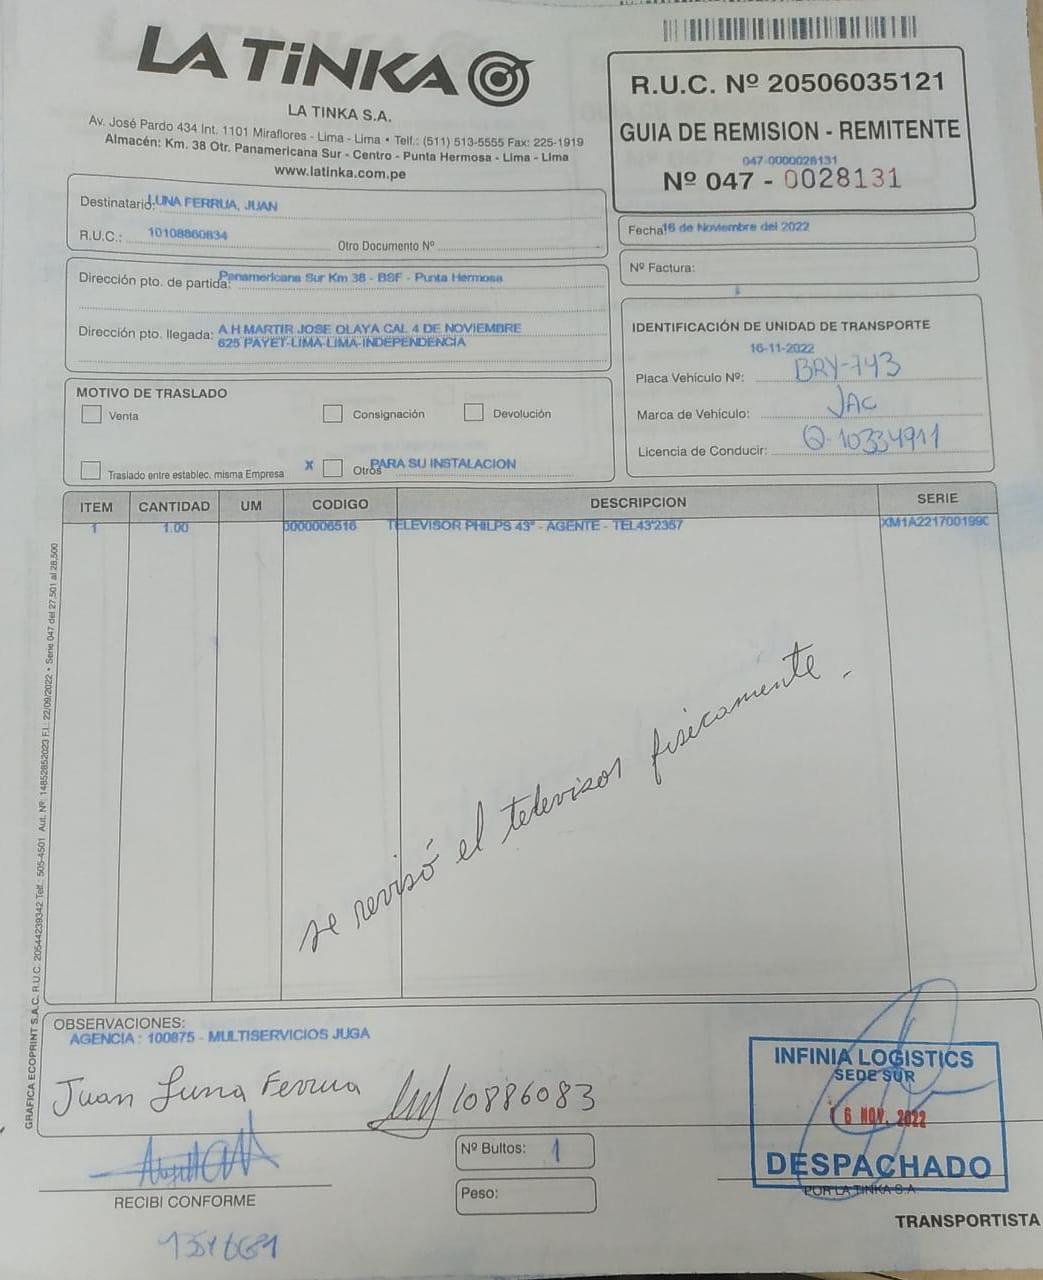 LA TiNKA
LA TINKA S.A.
Av. José Pardo 434 Int. 1101 Miraflores - Lima - Lima • Telf.: (511) 513-5555 Fax: 225-1919
Almacén: Km. 38 Otr. Panamericana Sur - Centro - Punta Hermosa - Lima - Lima
www.latinka.com.pe
R.U.C. Nº 20506035121
GUIA DE REMISION - REMITENTE
047-0000028131
Nº 047 - 0028131
Destinatario: LUNA FERRUA, JUAN
R.U.C.: 10108860834
Otro Documento Nº
Fecha 16 de Noviembre del 2022
Nº Factura:
Dirección pto. de partida: Panamericana Sur Km 38 - BSF - Punta Hermosa
Dirección pto. llegada: A.H MARTIR JOSE OLAYA CAL 4 DE NOVIEMBRE
625 PAYET-LIMA-LIMA-INDEPENDENCIA
IDENTIFICACIÓN DE UNIDAD DE TRANSPORTE
16-11-2022
Placa Vehículo Nº: BRY-743
Marca de Vehículo: JAC
Licencia de Conducir: Q-10334911
MOTIVO DE TRASLADO
Venta Consignación Devolución
Traslado entre establec. misma Empresa X Otros PARA SU INSTALACION
ITEM CANTIDAD UM CODIGO DESCRIPCION SERIE
1 1.00 0000006516 TELEVISOR PHILPS 43" - AGENTE - TEL43'2357 XM1A221700199C
se revisó el televisor fisicamente.
GRAFICA ECOPRINT S.A.C. R.U.C. 20544239342 Telf.: 505-4501 Aut. Nº: 14852852023 F.I.: 22/09/2022 • Serie 047 del 27,501 al 28,500
OBSERVACIONES:
AGENCIA : 100875 - MULTISERVICIOS JUGA
Juan Luna Ferrua 10886083
INFINIA LOGISTICS
SEDE SUR
16 NOV. 2022
DESPACHADO
POR LA TINKA S.A.
Nº Bultos: 1
Peso:
RECIBI CONFORME
TRANSPORTISTA